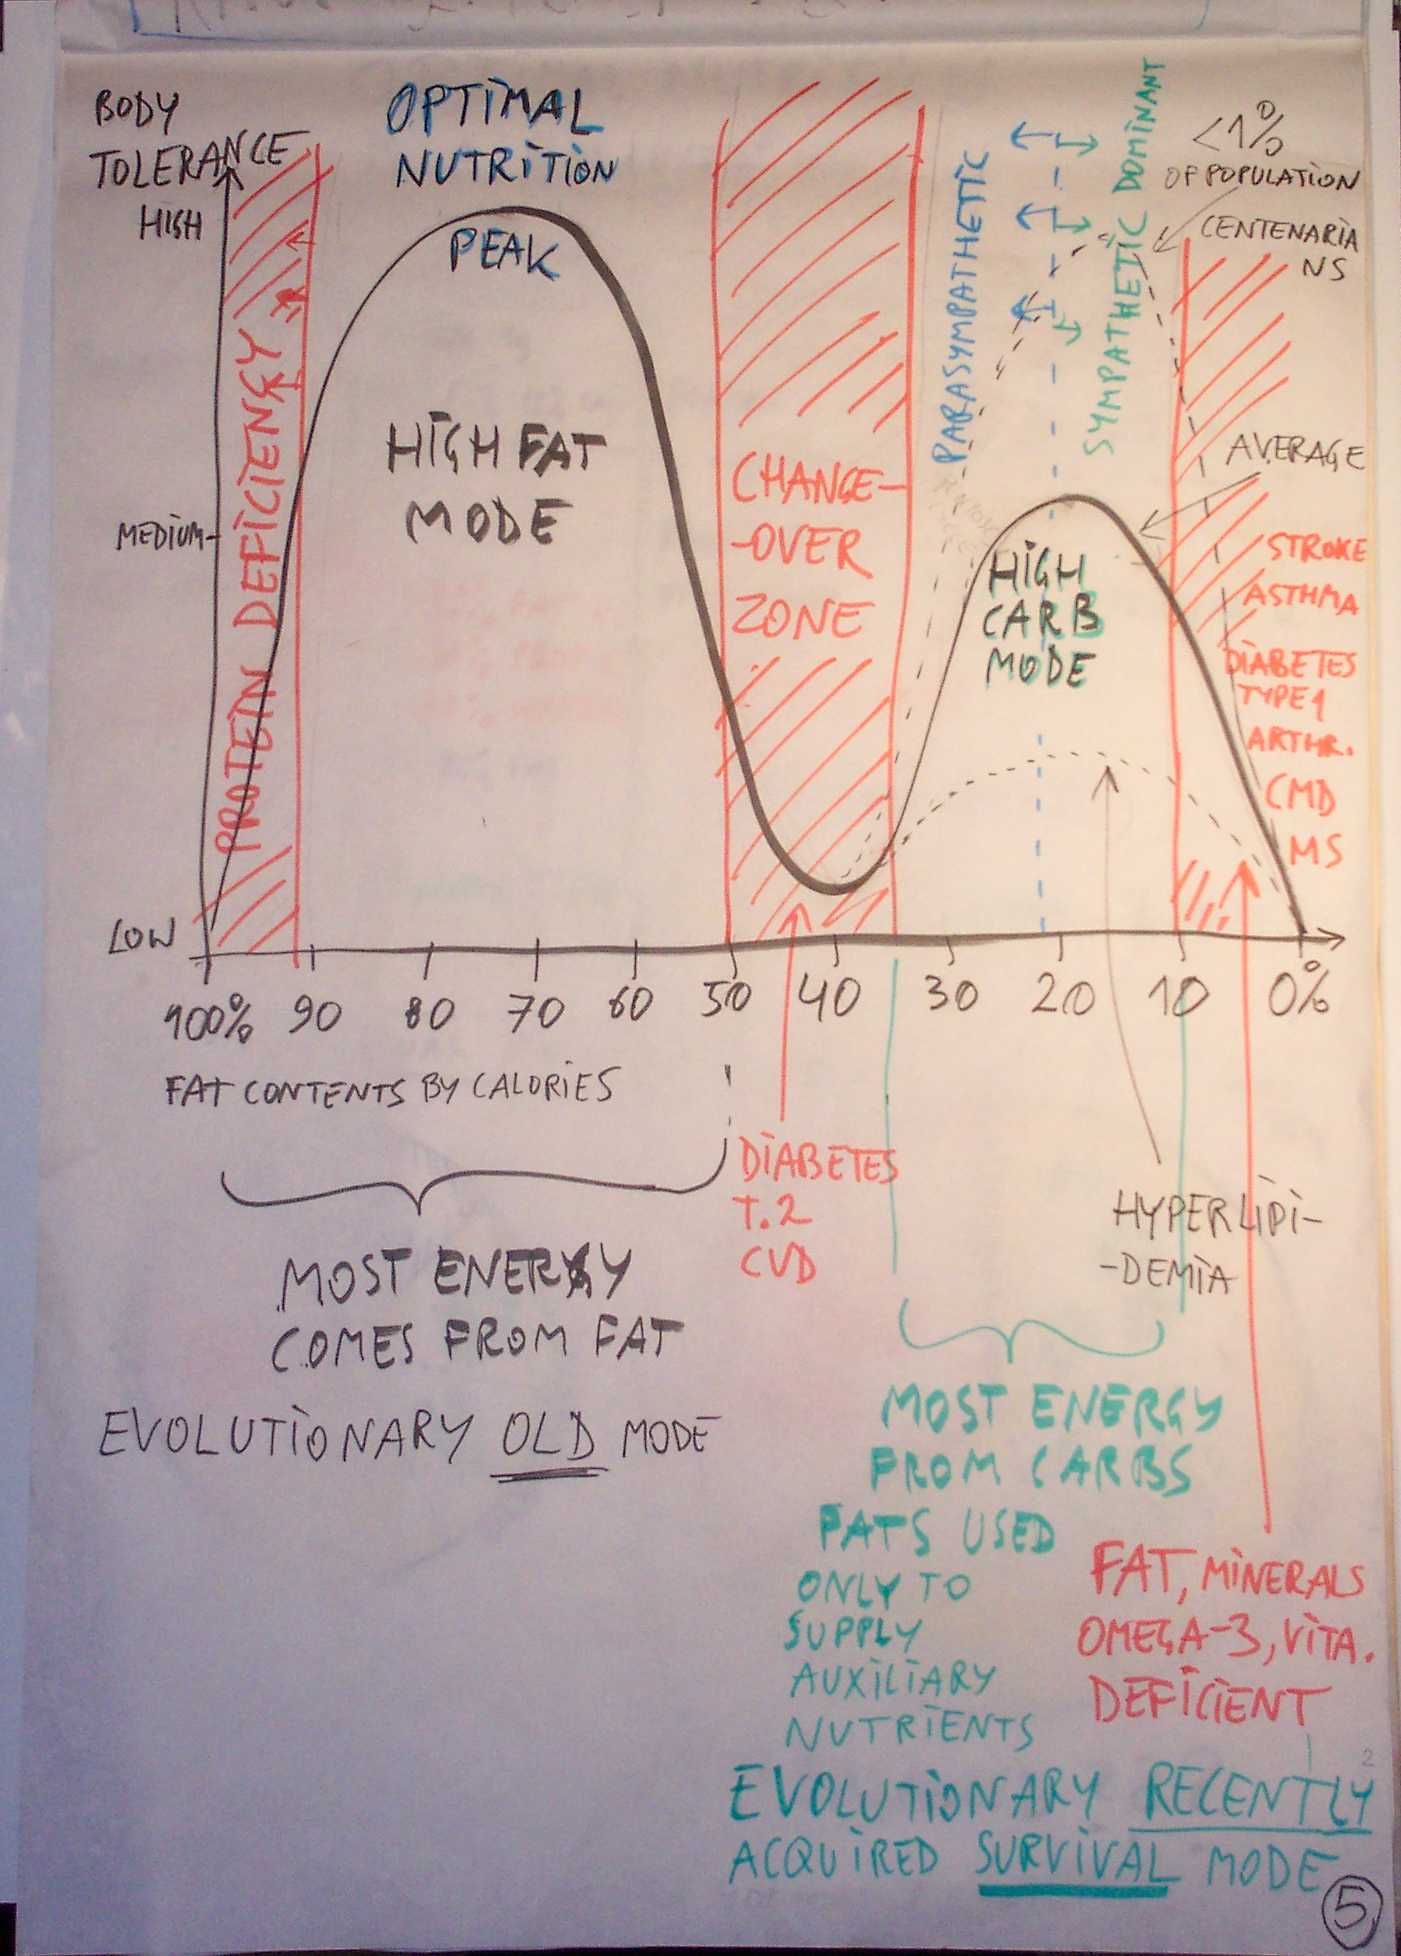 BODY
TOLERANCE
HIGH
MEDIUM
LOW
OPTIMAL
NUTRITION
PEAK
HIGH FAT
MODE
PROTEIN DEFICIENGY
CHANGE-
-OVER
ZONE
PARASYMPATHETIC
SYMPATHETIC DOMINANT
<1%
OF POPULATION
CENTENARIA
NS
AVERAGE
HIGH
CARB
MODE
STROKE
ASTHMA
DIABETES
TYPE 1
ARTHR.
CMD
MS
100% 90 80 70 60 50 40 30 20 10 0%
FAT CONTENTS BY CALORIES
DIABETES
T. 2
CVD
HYPERLIPI-
-DEMIA
MOST ENERGY
COMES FROM FAT
EVOLUTIONARY OLD MODE
MOST ENERGY
FROM CARBS
FATS USED
ONLY TO
SUPPLY
AUXILIARY
NUTRIENTS
FAT, MINERALS
OMEGA-3, VITA.
DEFICIENT
EVOLUTIONARY RECENTLY
ACQUIRED SURVIVAL MODE
2
5